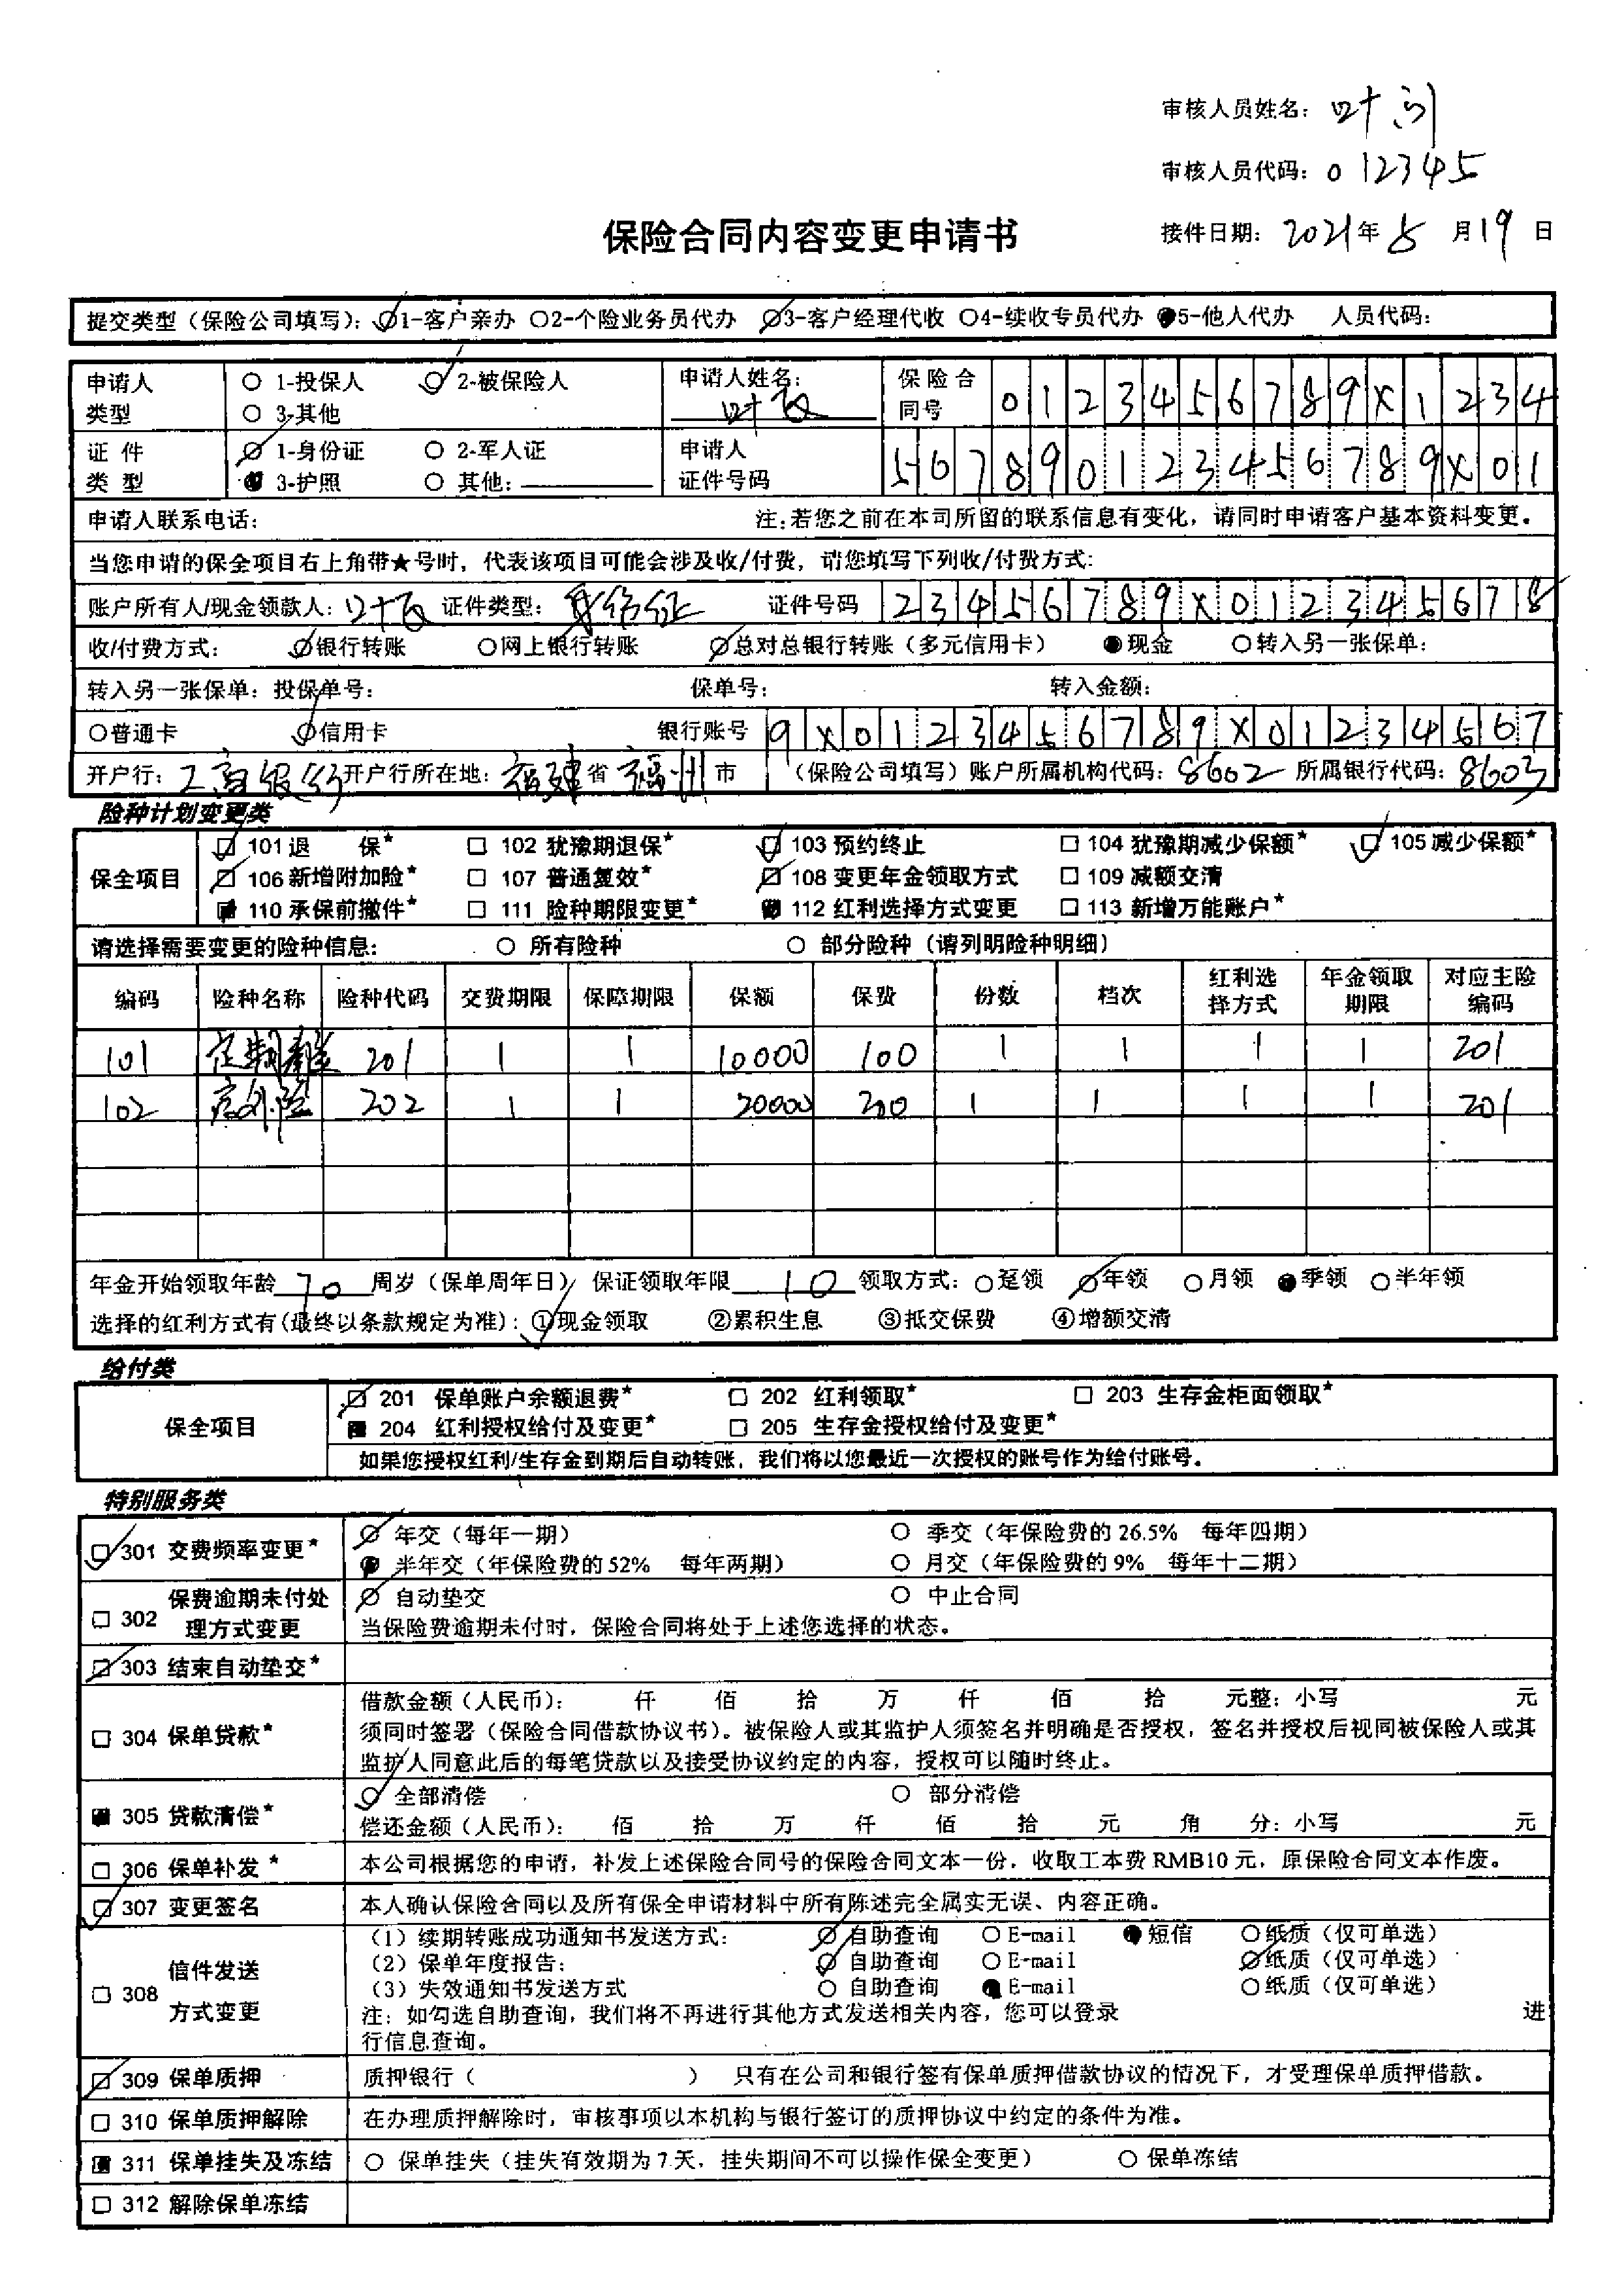 审核人员姓名：叶问
审核人员代码：012345
保险合同内容变更申请书
接件日期：2021年5月19日
提交类型（保险公司填写）：○1-客户亲办 ○2-个险业务员代办 ○3-客户经理代收 ○4-续收专员代办 ●5-他人代办 人员代码：
申请人类型 ○ 1-投保人 ○ 2-被保险人 ○ 3-其他 申请人姓名： 保险合同号 0123456789X1234
证件类型 ○ 1-身份证 ○ 2-军人证 ● 3-护照 ○ 其他： 申请人证件号码 567890123456789X01
申请人联系电话： 注：若您之前在本司所留的联系信息有变化，请同时申请客户基本资料变更。
当您申请的保全项目右上角带★号时，代表该项目可能会涉及收/付费，请您填写下列收/付费方式：
账户所有人/现金领款人： 证件类型：身份证 证件号码 23456789X012345678
收/付费方式： ○银行转账 ○网上银行转账 ○总对总银行转账（多元信用卡） ●现金 ○转入另一张保单：
转入另一张保单：投保单号： 保单号： 转入金额：
○普通卡 ○信用卡 银行账号 9X0123456789X01234567
开户行：工商银行 开户行所在地：福建省福州市 （保险公司填写）账户所属机构代码：8602 所属银行代码：8603
险种计划变更类
保全项目
□ 101 退 保★ □ 102 犹豫期退保★ □ 103 预约终止 □ 104 犹豫期减少保额★ □ 105 减少保额★
□ 106 新增附加险★ □ 107 普通复效★ □ 108 变更年金领取方式 □ 109 减额交清
■ 110 承保前撤件★ □ 111 险种期限变更★ ■ 112 红利选择方式变更 □ 113 新增万能账户★
请选择需要变更的险种信息： ○ 所有险种 ○ 部分险种（请列明险种明细）
编码 险种名称 险种代码 交费期限 保障期限 保额 保费 份数 档次 红利选择方式 年金领取期限 对应主险编码
101 201 1 1 10000 100 1 1 1 1 201
102 意外险 202 1 1 20000 200 1 1 1 1 201
年金开始领取年龄70周岁（保单周年日） 保证领取年限10 领取方式：○趸领 ○年领 ○月领 ●季领 ○半年领
选择的红利方式有（最终以条款规定为准）：①现金领取 ②累积生息 ③抵交保费 ④增额交清
给付类
保全项目
□ 201 保单账户余额退费★ □ 202 红利领取★ □ 203 生存金柜面领取★
■ 204 红利授权给付及变更★ □ 205 生存金授权给付及变更★
如果您授权红利/生存金到期后自动转账，我们将以您最近一次授权的账号作为给付账号。
特别服务类
□ 301 交费频率变更★ ○ 年交（每年一期） ○ 季交（年保险费的 26.5% 每年四期）
● 半年交（年保险费的 52% 每年两期） ○ 月交（年保险费的 9% 每年十二期）
□ 302 保费逾期未付处理方式变更 ○ 自动垫交 ○ 中止合同
当保险费逾期未付时，保险合同将处于上述您选择的状态。
□ 303 结束自动垫交★
□ 304 保单贷款★ 借款金额（人民币）： 仟 佰 拾 万 仟 佰 拾 元整：小写 元
须同时签署（保险合同借款协议书）。被保险人或其监护人须签名并明确是否授权，签名并授权后视同被保险人或其
监护人同意此后的每笔贷款以及接受协议约定的内容，授权可以随时终止。
■ 305 贷款清偿★ ○ 全部清偿 ○ 部分清偿
偿还金额（人民币）： 佰 拾 万 仟 佰 拾 元 角 分：小写 元
□ 306 保单补发★ 本公司根据您的申请，补发上述保险合同号的保险合同文本一份，收取工本费 RMB10 元，原保险合同文本作废。
□ 307 变更签名 本人确认保险合同以及所有保全申请材料中所有陈述完全属实无误、内容正确。
□ 308 信件发送方式变更
（1）续期转账成功通知书发送方式： ○ 自助查询 ○ E-mail ● 短信 ○ 纸质（仅可单选）
（2）保单年度报告： ○ 自助查询 ○ E-mail ○ 纸质（仅可单选）
（3）失效通知书发送方式 ○ 自助查询 ● E-mail ○ 纸质（仅可单选）
注：如勾选自助查询，我们将不再进行其他方式发送相关内容，您可以登录 进
行信息查询。
□ 309 保单质押 质押银行（ ） 只有在公司和银行签有保单质押借款协议的情况下，才受理保单质押借款。
□ 310 保单质押解除 在办理质押解除时，审核事项以本机构与银行签订的质押协议中约定的条件为准。
■ 311 保单挂失及冻结 ○ 保单挂失（挂失有效期为 7 天，挂失期间不可以操作保全变更） ○ 保单冻结
□ 312 解除保单冻结